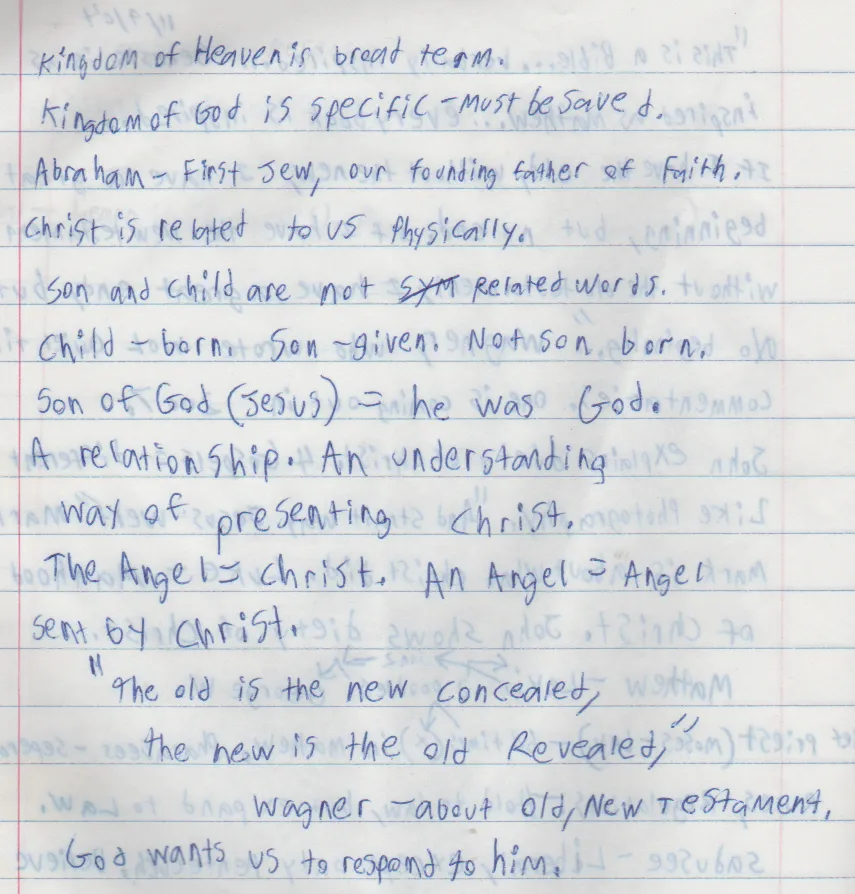 Kingdom of Heaven is broad term.
Kingdom of God is specific - Must be saved.
Abraham - First Jew, our founding father of Faith.
Christ is related to us physically.
Son and Child are not SYM Related words.
Child - born. Son - given. Not son born.
Son of God (Jesus) = he was God.
A relationship. An understanding
way of presenting Christ.
The Angel = Christ. An Angel = Angel
sent by Christ.
"The old is the new concealed,
the new is the old Revealed,"
Wagner - about old, New Testament.
God wants us to respond to him.